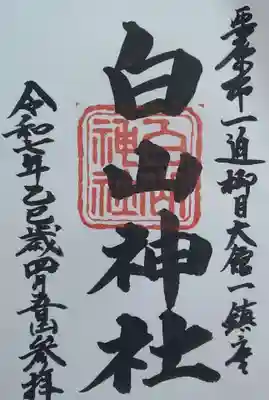 栗原市一迫柳目大舘一鎮座
白山神社
白山神社
令和七年乙巳歳四月吉日参拝